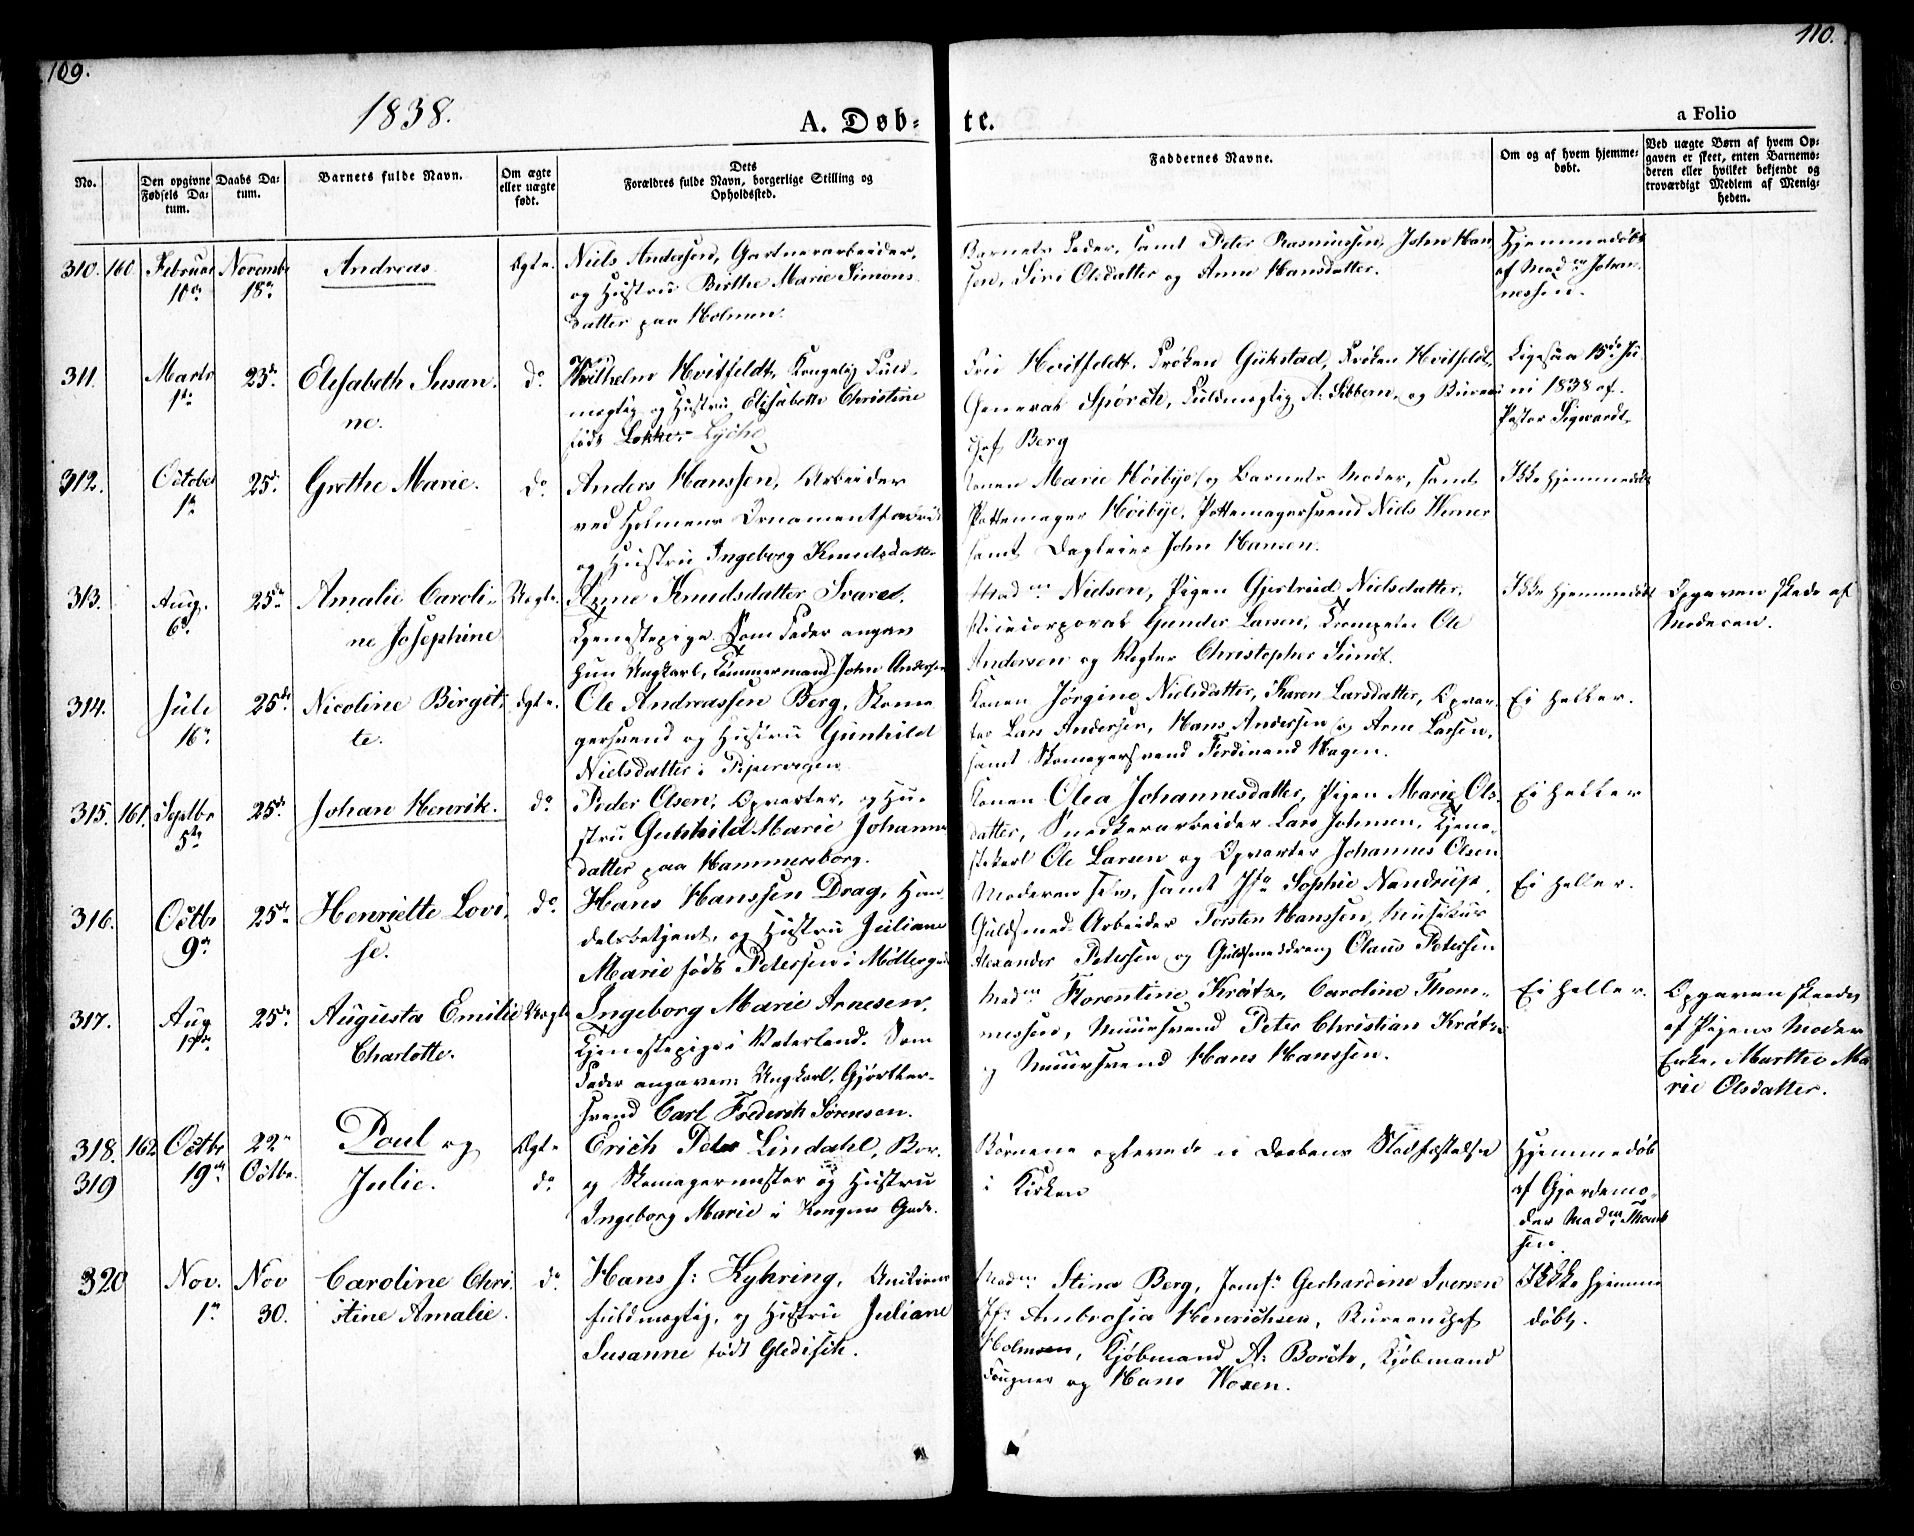 109.
110.
1838.
A. Døb-
te.
a Folio
No.
Den opgivne Fødsels Da-tum.
Daabs Da-tum.
Barnets fulde Navn.
Om ægte eller uægte født.
Dets
Forældres fulde Navn, borgerlige Stilling og
Opholdssted.
Faddernes Navne.
Om og af hvem hjemme-døbt.
Ved uægte Børn af hvem Op-gaven er skeet, enten Barnemo-deren eller hvilket bekjendt og troværdigt Medlem af Menig-heden.
310. 160 Februar 10de Novembr 18de Andreas Ægte.
Niels Andersen, Gartnerarbeider,
og Hustru Birthe Marie Simons
datter paa Holmen.
Barnets Fader, samt Peter Rasmussen, John Han
sen, Siri Olsdatter og Anne Hansdatter.
Hjemmedøbt
af Madm Johan
nessen.
311. Marts 1ste 23de Elisabeth Susan
ne.
do
Wilhelm Hvitfeldt, Kongelig Fuld-
mægtig og Hustru Elisabeth Christine
født Lyche
Fru Hvitfeldt, Frøken Gükstad, Frøken Hvitfeldt,
General Spörck, Fuldmægtig A. Sibbern, og Bureau
chef Berg
Ligesaa 15de Ju
ni 1838 af
Pastor Sigwardt
312. October 1ste 25de Grethe Marie. do
Anders Hanssen, Arbeider
ved Holmens Ornamentfabrik
og Hustru Ingeborg Knudsdatter
Konen Marie Höibye og Barnets Moder, samt
Pottemager Höibye, Pottemagersvend Niels Werner
samt Dagleier John Hansen.
Ikke hjemmedøbt
313. Aug. 6te 25de Amalie Caroli-
ne Josephine
Uægte.
Anne Knudsdatter Svare,
Tjenestepige. Som Fader angav
hun Ungkarl, Tømmermand John Andersen
Madm Nielsen, Pigen Gjertrud Nielsdatter,
Vicecorporal Gunder Larsen, Trompeter Ole
Andersen og Vægter Christopher Sundt.
Ikke hjemmedøbt
Opgaven skede af
Moderen.
314. Juli 16de 25de Nicoline Birgit-
te.
Ægte.
Ole Andreassen Berg, Skoma
gersvend og Hustru Gunhild
Nielsdatter i Pipervigen
Konen Jørgine Nielsdatter, Karen Larsdatter, Opvar-
ter Lars Andersen, Hans Andersen og Arne Larsen,
samt Skomagersvend Ferdinand Hagen.
Ei heller.
315. 161. Septbr 5te 25de Johan Henrik. do
Peder Olsen, Opvarter, og Hu-
stru Gunhild Marie Johannes
datter paa Hammersborg.
Konen Olea Johannesdatter, Pigen Marie Ols-
datter, Snedkerarbeider Lars Johnsen, Tjene-
stekarl Ole Larsen og Opvarter Johannes Olsen
Ei heller
316. Octbr 9de 25de Henriette Lovi-
se.
do
Hans Hanssen Drag, Han
delsbetjent, og Hustru Juliane
Marie født Petersen i Møllergad
Moderen selv, samt Jfr Sophie Nandrup,
Guldsmed Arbeider Torsten Hanssen, Musikus
Alexander Petersen og Guldsmeddreng Claus Petersen
Ei heller.
317. Aug 25de Augusta Emilie
Charlotte.
Uægte
Ingeborg Marie Arnesen,
Tjenestepige i Vaterland. Som
Fader angaven Ungkarl, Gjørtler-
svend Carl Frederik Sørensen.
Madm Florentine Krätz, Caroline Thom-
messen, Muursvend Peter Christian Krätz
og Muursvend Hans Hanssen.
Ei heller.
Opgaven skeede
af Pigens Moder
Enke, Marthe Ma
rie Olsdatter.
318. 162 Octbr 22de Poul og Ægte
319 19de Octbr. Julie. do
Erich Peter Lindahl, Bor-
g Skomagermester og Hustru
Ingeborg Marie i Kongens Gade.
Børnene oplevede ei Daabens Stadfæstelse
i Kirken
Hjemmedøb
af Gjordemo-
der Madm Thom
sen.
320 Nov. 1ste Nov 30. Caroline Chri-
stine Amalie.
do
Hans J: Kyhring,
fuldmægtig, og Hustru Juliane
Susanne født Gleditsch.
Madm Stina Berg, Jomfr Gerhardine Iversen
Jfr Ambrosia Henrichsen, Bureauchef
Holmsen, Kjøbmand A: Borch, Kjøbmand
Fougner og Hans Woxen.
Ikke hjemme
døbt.